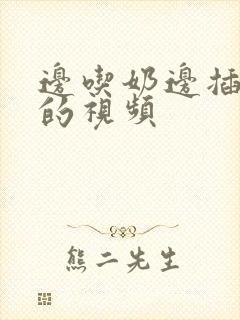 邊喫奶邊插
的視頻
熊二先生